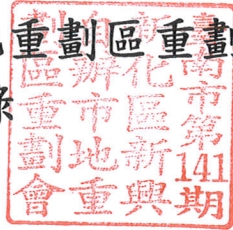 重劃區重劃
錄
臺南市第141期
新化區新興
自辦市地重
劃區重劃會